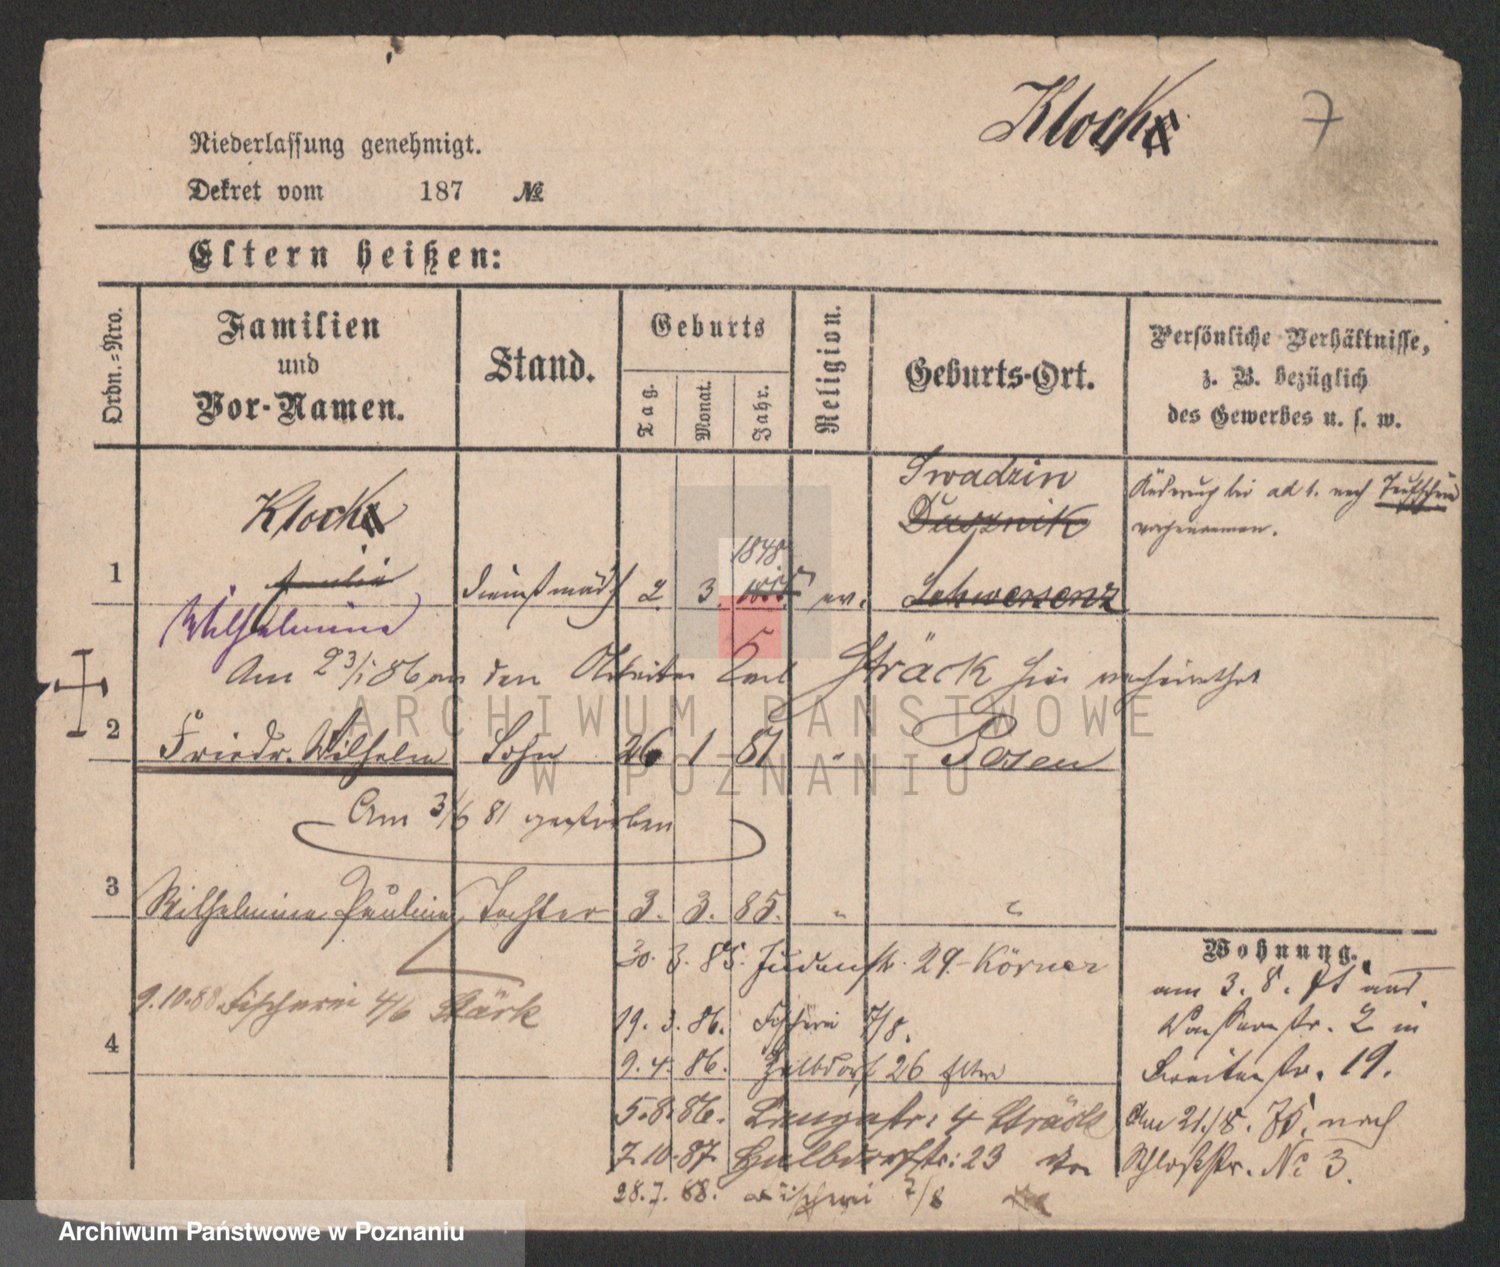 Klock
7
Niederlassung genehmigt.
Dekret vom 187 №
Eltern heißen:
Ordn.-Nro.
Familien und Vor-Namen.
Stand.
Geburts
Tag. Monat. Jahr.
Religion.
Geburts-Ort.
Persönliche Verhältnisse, z. B. bezüglich des Gewerbes u. s. w.
Swadzin
Klock
Dusznik
ad 1. nach
vorgenommen.
1848
1 Julie Dienstmädch 2. 3. 1855 ev. Schwersenz
Wilhelmine
Am 23/1 86 an den Arbeiter Carl Sträck hier verheirathet
2 Friedr. Wilhelm Sohn 26 1 81 " Posen
Am 3/6 81 gestorben
3 Wilhelmine Pauline Tochter 3. 3. 85. " "
Wohnung.
30. 3. 85. Judenstr. 29 Körner
am 3. 8. 75 aus
9.10.88 Fischerei 4/6 Stärk
19. 3. 86. Fischerei 7/8.
2 in
4
9. 4. 86. Halbdorf 26
Breitestr. 19.
5.8.86. Langestr: 4 Sträck
Am 21./8. 75. nach
7.10.87. Halbdorfstr: 23
Schloßstr. № 3.
28.7.88. Fischerei 7/8
ARCHIWUM PAŃSTWOWE
W POZNANIU
Archiwum Państwowe w Poznaniu